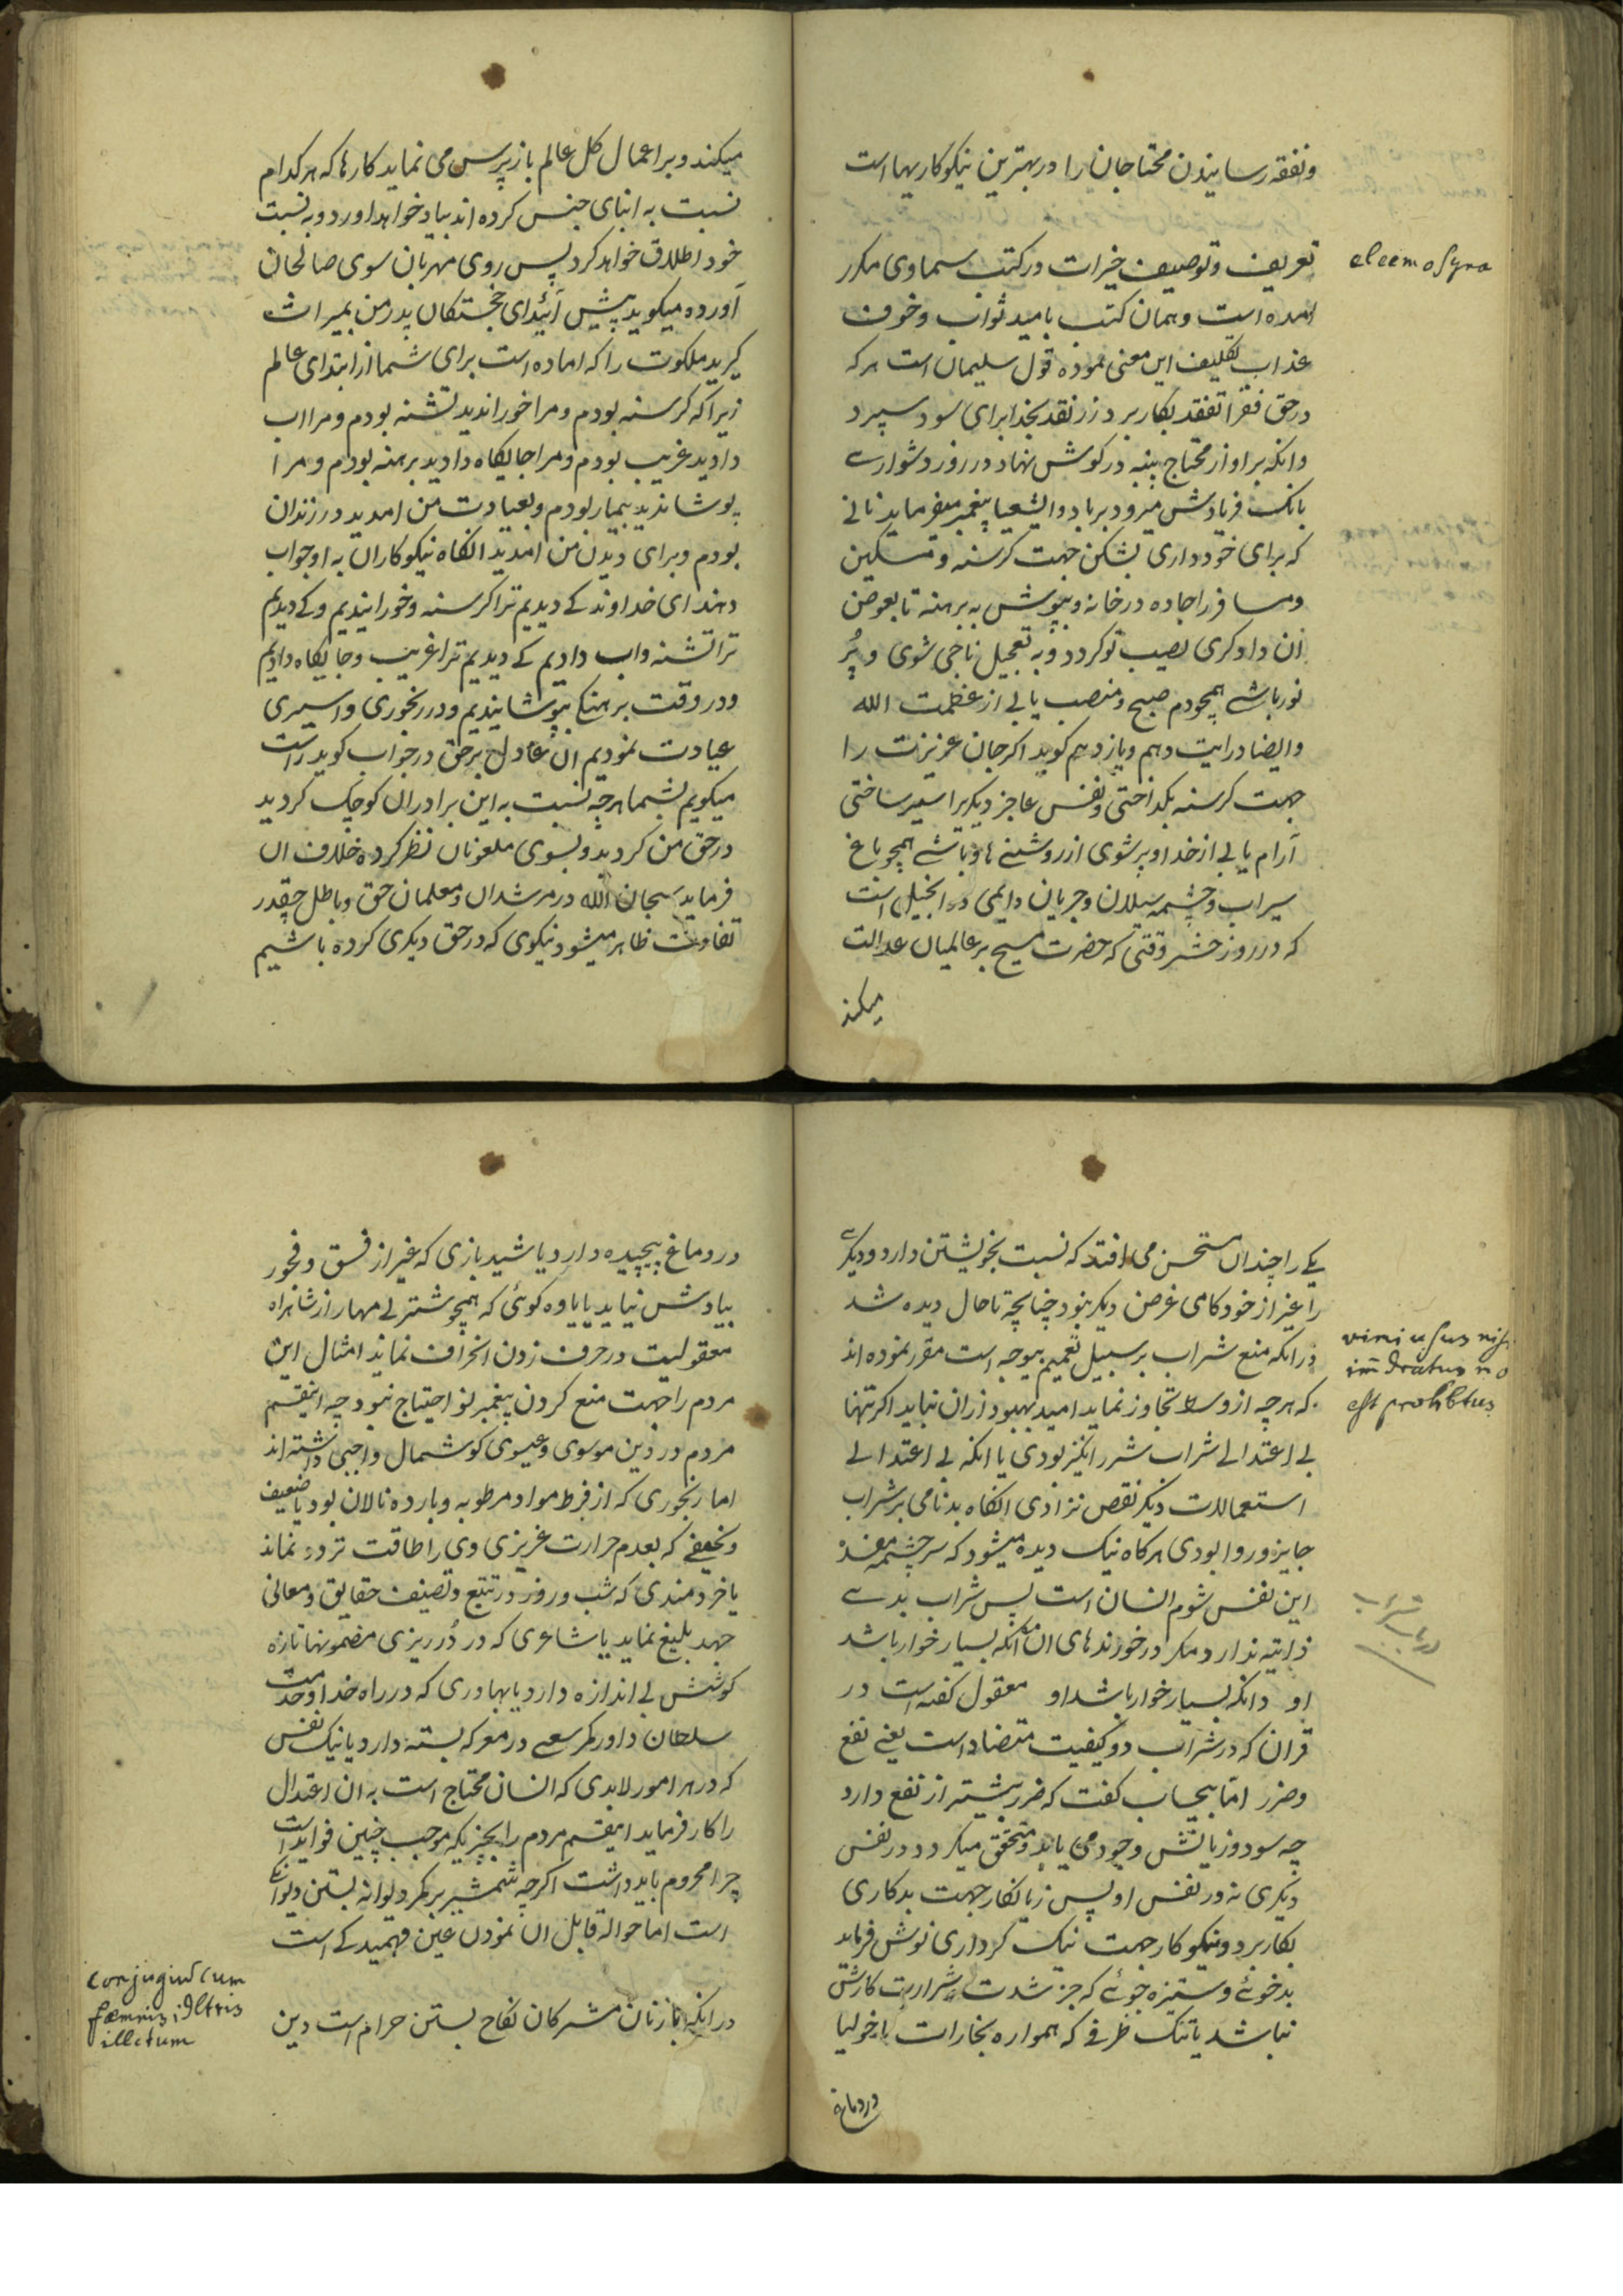 ونفقه رسانیدن محتاجان را در بهترین نیکوکاریها است
eleemosyna
تعریف و توصیف خیرات در کتب سماوی مکرر
امده است و همان کتب بامید ثواب و خوف
عذاب تکلیف این معنی نموده قول سلیمان است هر که
در حق فقرا تفقد بکار برد زر نقد بخدا برای سود سپرد
وانکه بر اواز محتاج پنبه در کوش نهاد در روز دشوارے
بانک فریادش میرود برباد و اشعیا پیغمبر میفرماید نانے
که برای خود داری بشکن جهت کرسنه و مسکین
ومسافر را جاده در خانه و بپوش به برهنه تا بعوض
ان داوکری نصیب تو کردد و به تعجیل ناجی شوی و پُر
نور باشے همچو دم صبح و منصب یابے از عظمت الله
وایضا در ایت دهم و یازدهم کوید اکر جان عزیزت را
جهت کرسنه بکداختی و نفس عاجز دیکر را سیر ساختی
آرام یابے از خدا و پر شوی از روشنے ها و باشے همچو باغ
سیراب و چشمه سیلان و جریان دایمی در انجیل است
که در روز حشر وقتی که حضرت مسیح بر عالمیان عدالت
میکند
میکند و بر اعمال کل عالم بازپرس می نماید کارها که هر کدام
نسبت به ابنای جنس کرده اند بیاد خواهد اورد و به نسبت
خود اطلاق خواهد کرد پس روی مهربان سوی صالحان
آورده میکوید پیش آئید ای خجستکان پدر من بمیراث
کیرید ملکوت را که اماده است برای شما از ابتدای عالم
زیرا که کرسنه بودم و مرا خوراندید تشنه بودم و مرا اب
دادید غریب بودم و مرا جایکاه دادید برهنه بودم و مرا
پوشاندید بیمار بودم و بعیادت من امدید در زندان
بودم و برای دیدن من امدید انکاه نیکوکاران به او جواب
دهند ای خداوند کے دیدیم ترا کرسنه و خورانیدیم و کے دیدیم
ترا تشنه و اب دادیم کے دیدیم ترا غریب و جایکاه دادیم
و در وقت برهنکے بپوشانیدیم و در رنجوری و اسیری
عیادت نمودیم ان عادل برحق در جواب کوید راست
میکویم بشما هرچه نسبت به این برادران کوچک کردید
در حق من کردید و بسوی ملعونان نظر کرده خلاف ان
فرماید سبحان الله در مرشدان و معلمان حق و باطل چقدر
تفاوت ظاهر میشود نیکوی که در حق دیکری کرده باشیم
یکے را چندان مستحسن می افتد که نسبت بخویشتن دارد و دیکرے
را غیر از خودکامی غرض دیکر نبود چنانچه تا حال دیده شد
vini usus nisi
im̃dratus nō
est prohibitus
در انکه منع شراب بر سبیل تعمیم بیوجه است مقرر نموده اند
که هرچه از وسط تجاوز نماید امید بهبود ازان نباید اکر تنها
بے اعتدالے شراب شررانکیز بودی یا انکه بے اعتدالے
استعمالات دیکر نقص نزادی انکاه بدنامی بر شراب
جایز و روا بودی هرکاه نیک دیده میشود که سرچشمه مفسده
این نفس شوم انسان است پس شراب بدے
ذاتیه ندارد مکر در خورندهای ان مکانکه بسیار خوار باشد
او وانکه بسیار خوار باشد او معقول کفته است در
قران که در شراب دو کیفیت متضاد است یعنی نفع
و ضرر اما بیحساب کفت که ضرر بیشتر از نفع دارد
چه سود و زیانش وجود می یابد و متحقق میکردد در نفس
دیکری نه در نفس او پس زیانکار جهت بدکاری
بکار برد و نیکوکار جهت نیک کرداری نوش فرماید
بدخوئے و ستیزه جوئے که جز شدت شرارت کارش
نباشد یا تنک ظرفے که همواره بخارات ماخولیا
در دماغ
در دماغ پیچیده دارد یا شیدبازی که غیر از فسق و فجور
بیادش نیاید یا یاوه کوئی که همچو شتر بے مهار از شاهراه
معقولیت در حرف زدن انحراف نماید امثال این
مردم را جهت منع کردن پیغمبر نو احتیاج نبود چه اینقسم
مردم در دین موسوی و عیسوی کوشمال واجبی داشته اند
اما رنجوری که از فرط مواد مرطوبه و بارده نالان بود یا ضعیف
و نحیفے که بعدم حرارت غریزی وی را طاقت تردد نماند
یا خردمندی که شب و روز در تتبع و تصنیف حقایق و معانی
جهد بلیغ نماید یا شاعری که در دُرریزی مضمونها تازه
کوشش بے اندازه دارد یا بهادری که در راه خدا و خدمت
سلطان داور کمر سعے در معرکه بسته دارد یا نیک نفس
که در هر امور لابدی که انسان محتاج است به ان اعتدال
را کار فرماید اینقسم مردم را بچیزیکه موجب چنین فواید است
چرا محروم باید داشت اکرچه شمشیر بر کمر دیوانه بستن دیوانکے
است اما حواله قابل ان نمودن عین فهمیدکے است
conjugiũ cum
fæmnis idltris
illctum
در انکه با زنان مشرکان نکاح بستن حرام است دین